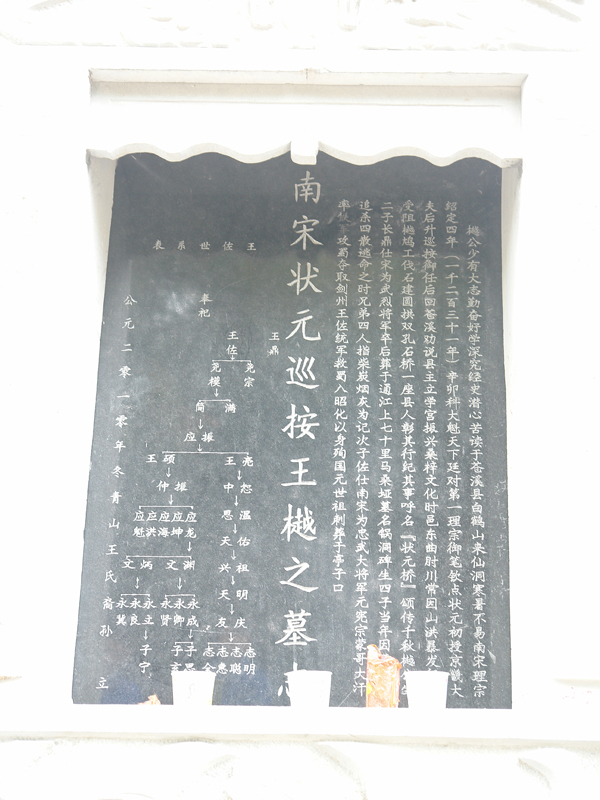 樾公少有大志勤奋好学深究经史潜心苦读于苍溪县白鹤山来仙洞寒暑不易南宋理宗
绍定四年（一千二百三十一年）辛卯科大魁天下廷对第一理宗御笔钦点状元初授京畿大
夫后升巡按御任后回苍溪劝说县主立学宫振兴桑梓文化时邑东曲肘川常因山洪暴发
受阻樾鸠工伐石建圆拱双孔石桥一座县人彰其行纪其事呼名『状元桥』颂传千秋樾
二子长鼎仕宋为武烈将军卒后葬于通江上七十里马桑垭墓名锅洞碑生四子当年因
追杀四散逃命之时兄弟四人指柴炭烟灰为记次子佐仕南宋为忠武大将军元宪宗蒙哥大汗
率 攻蜀夺取剑州王佐统军救蜀入昭化以身殉国元世祖刺葬于亭子口
南宋状元巡按王樾之墓
王佐世系表
王鼎
奉祀
王佐
尧模 尧宗
简 满
应振
王硕 王亮
仲振 中 恕
应魁 应洪 应海 应坤 应龙
恩 温
天 佑
文炳 文渊
兴 祖
天 明
永冀 永良 永立 永贤 永卿 永成
友 庆
子宁
子言 子思
志全 志惠 志聪 志明
公元二零一零年冬青山王氏裔孙 立